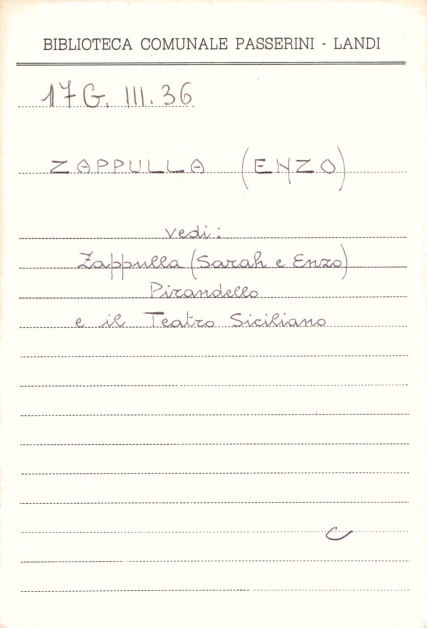 BIBLIOTECA COMUNALE PASSERINI - LANDI
17 G. III. 36
ZAPPULLA (ENZO)
vedi:
Zappulla (Sarah e Enzo)
Pirandello
e il Teatro Siciliano
C